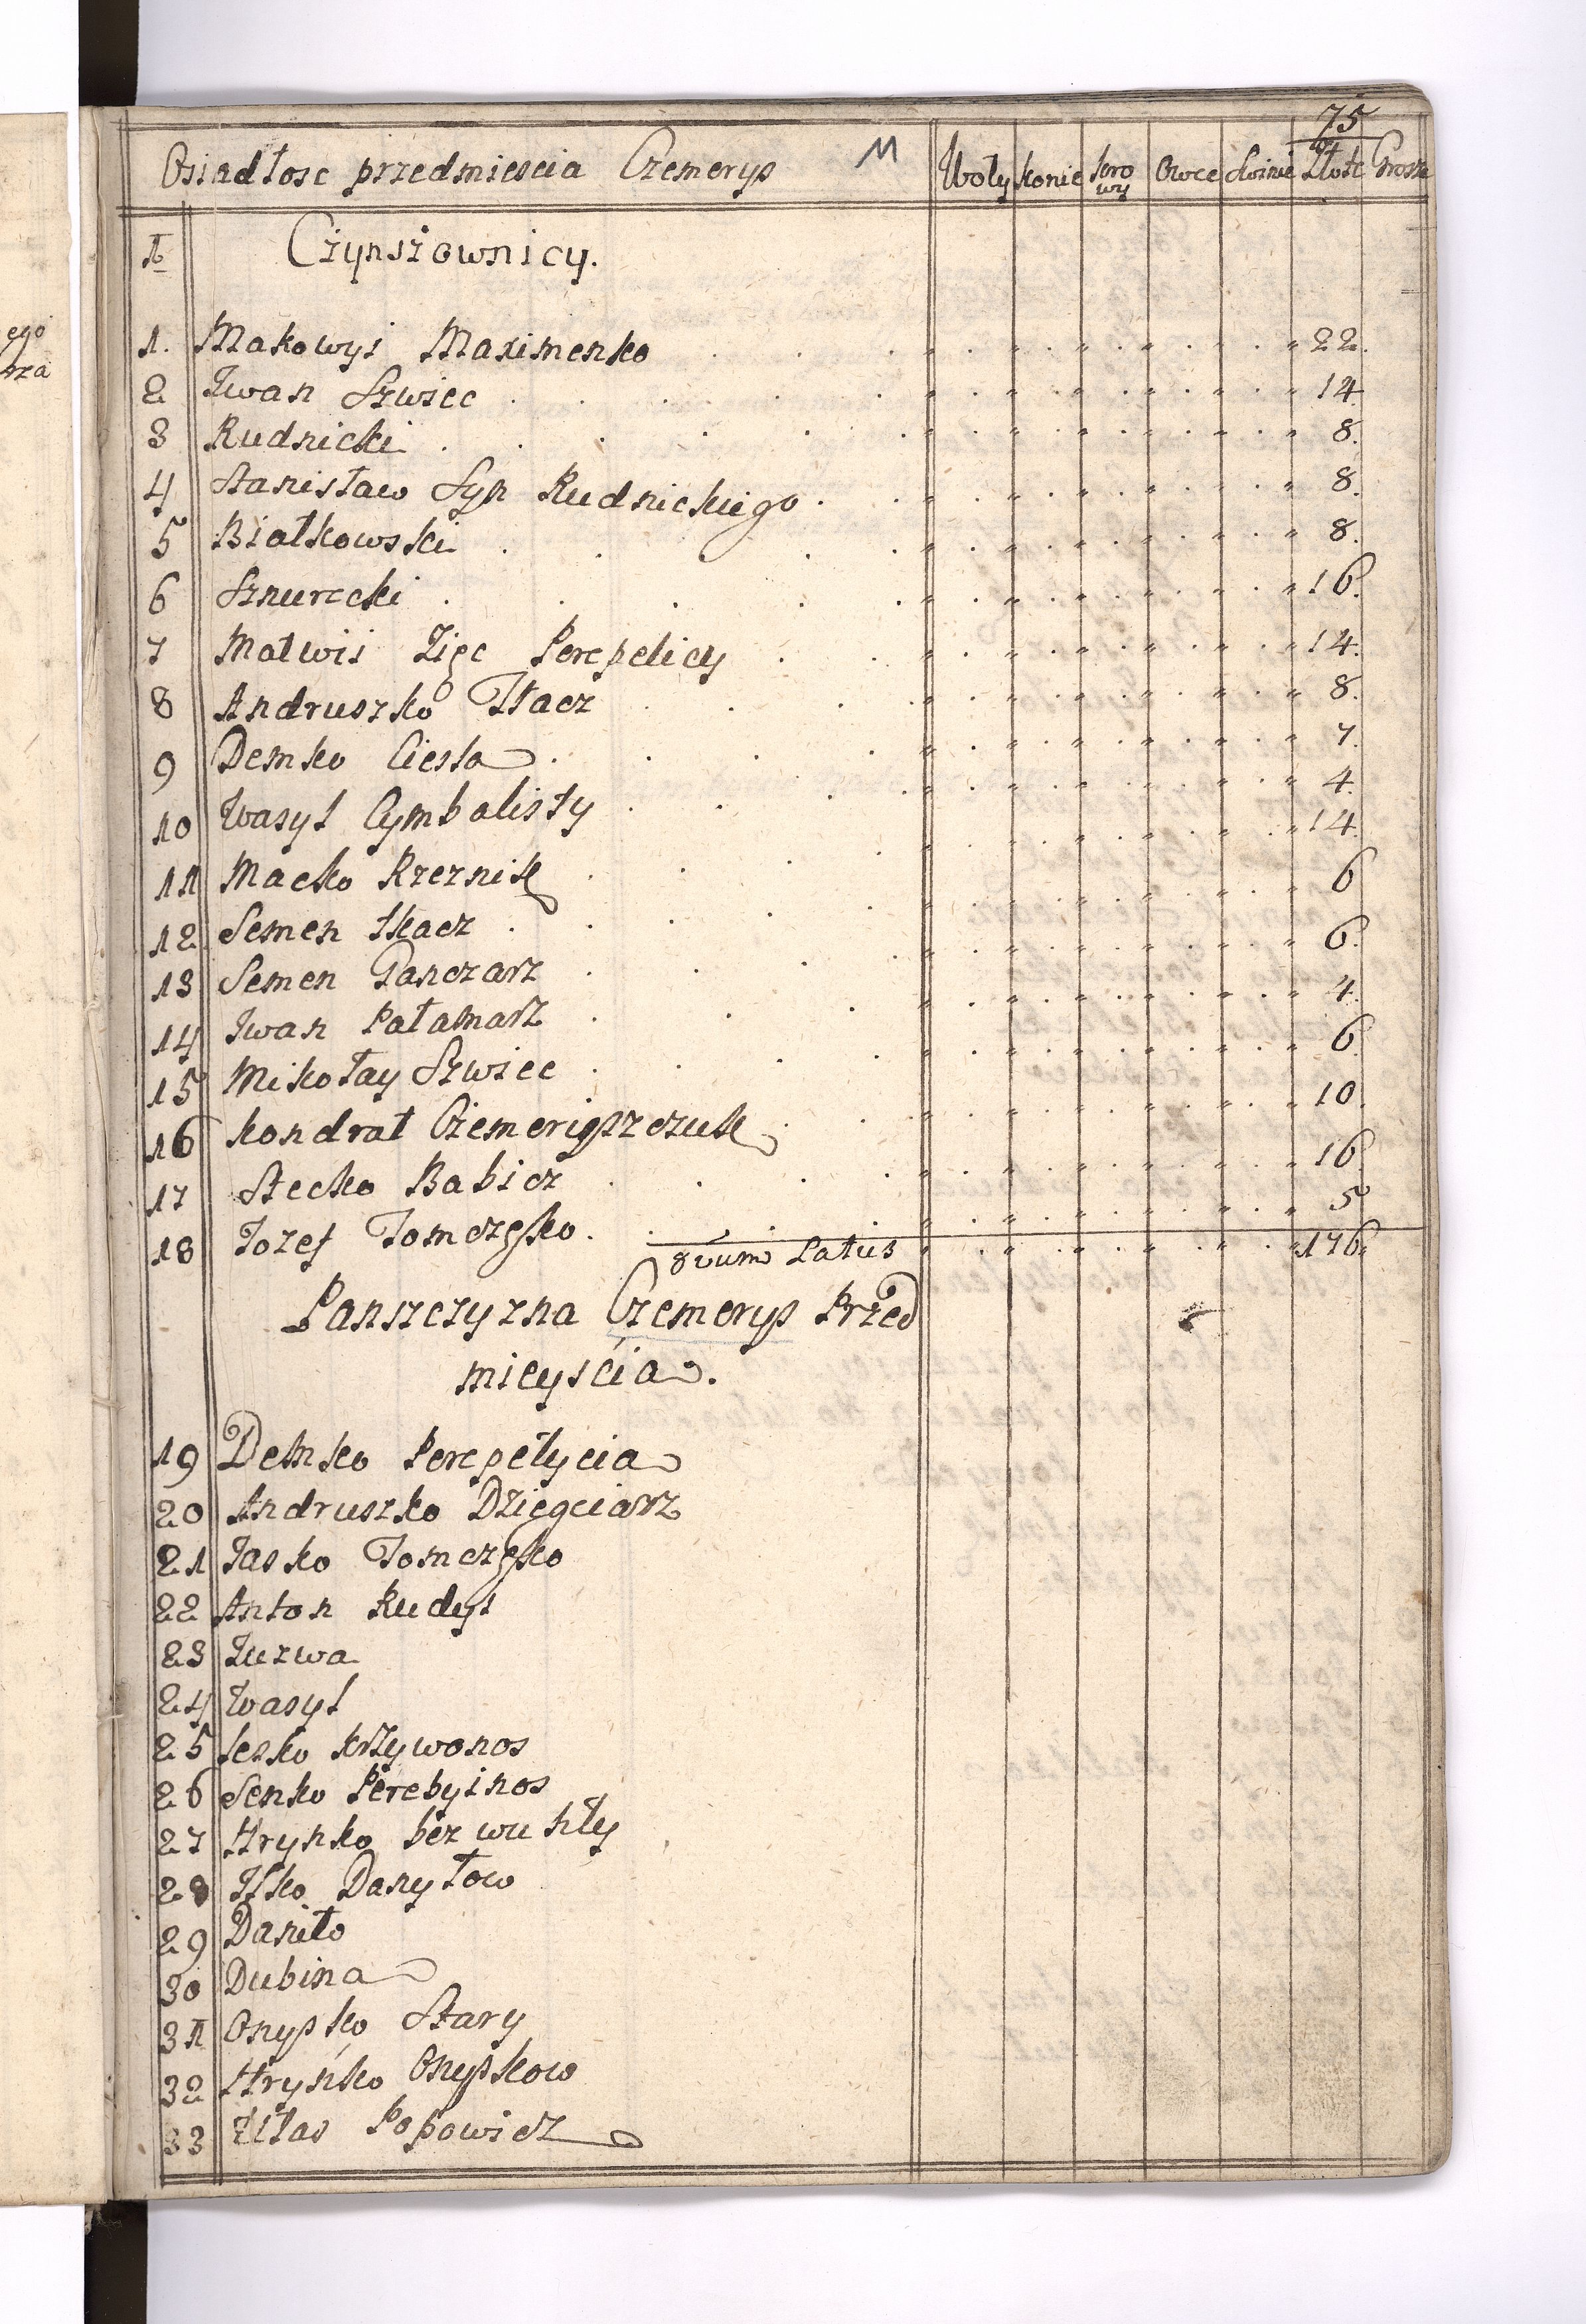 75
Osiadłosc przedmiescia Czemerys M Woły konie kro wy Owce Swinie Złote Grosze
N Czynszownicy.
1. Makowyi Maximenko 22.
2 Iwan Szwiec 14
3 Rudnicki 8.
4 Stanisław Syn Rudnickiego 8.
5 Białkowski 8.
6 Sznurecki 16.
7 Matwii Zięc Perepelicy 14.
8 Andruszko Tkacz 8.
9 Demko Ciesla 7.
10 Wasyl Cymbalisty 4.
11 Macko Rzeznik 14.
12 Semen tkacz 6
13 Semen Ganczarz 6.
14 Iwan Pałamarz 4.
15 Mikołay Szwiec 6
16 Kondrat Czemeryszczuk 10
17 Stecko Babicz 16
18 Jozef Tomczysko 5
Latus 176.
Panszczyzna Czemerys Przed
mieyścia.
19 Demko Perepełycia
20 Andruszko Dziegciarz
21 Jasko Tomczysko
22 Anton Rudyi
23 Juzwa
24 Wasyl
25 lesko krzywonos
26 Senko Perebyinos
27 Hrynko bez wu hły
28 Isko Danyłow
29 Daniło
30 Dubina
31 Onysko Stary
32 Hryńko Onyskow
33 Ułas Popowicz